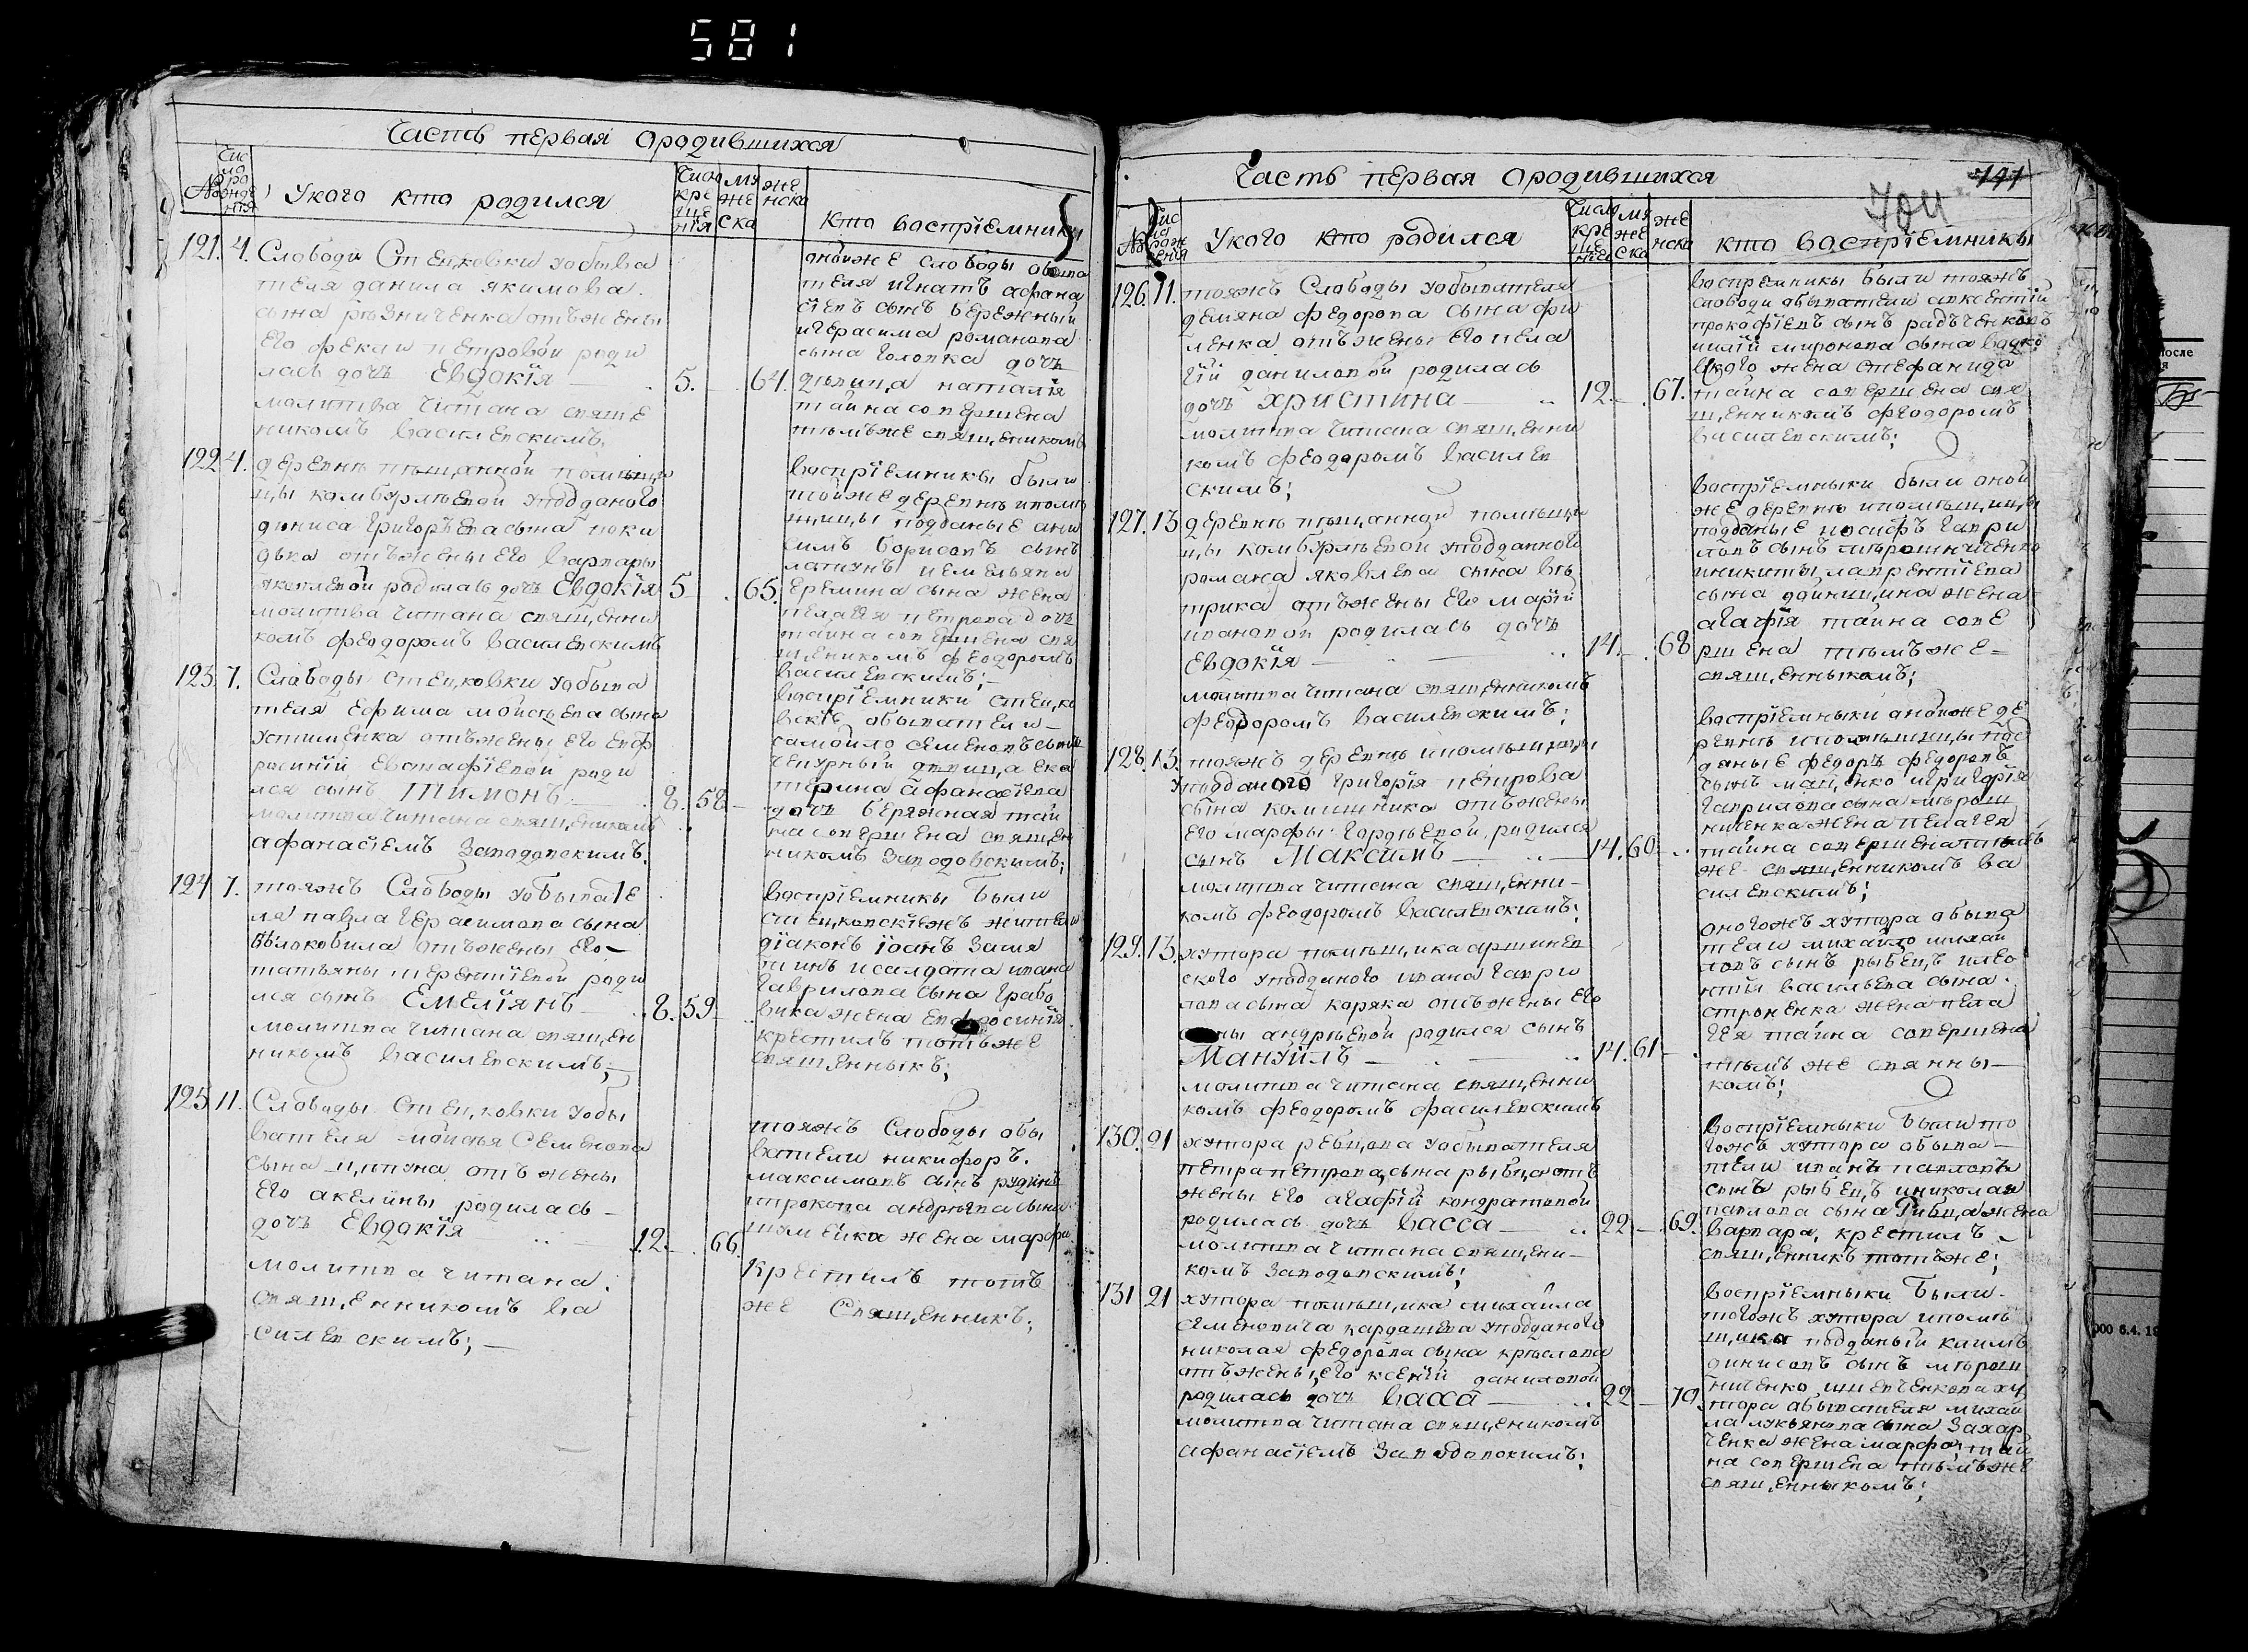 581
Часть первая Ородившихся
№
Число рожденія
Укого кто родился
Число крещенія
мужеска
женска
Кто воспріемники
121. 4. Слободи Стецковки уобыва
теля данила якимова
сына резниченка отъ жены
Его феклы петровой роди
лась дочъ Евдокія 5. 64.
молитва читана свяще
никомъ василевскимъ;
онойже слободы обыва
теля игнатъ афана
сіевъ сынъ бережный
игерасима романова
сына голопка дочъ
девица наталія
тайна совершена
темъже священикомъ
122. 4. деревне пещанной помещи
цы комбурлеевой уподданого
дениса григорьева сына
отъ жены Его варвары
яковлевой родилась дочъ Евдокія 5 65.
молитва читана священни
комъ феодоромъ василевскимъ
воспріемники были
тойже деревне ипоме
щицы подданые ани
симъ борисовъ сынъ
иемельяна
еремина сына жена
пелагея петрова дочъ
тайна совершена свя
щеникомъ феодоромъ
василевскимъ;
123. 7. Слободы стецковки уобыва
теля Ефима мойсеева сына
устименка отъ жены Его евф
росинии Евстафіевой роди
лся сынъ Тимонъ 8. 58
молитва читана священикомъ
афанасіемъ Заводовскимъ.
воспріемники стецко
вскіе обыватели
самойло семеновъ сынъ
чепурный девица ека
терина афанасіева
дочъ бережная тай
на совершена священ
никомъ Заводовскимъ;
124 7. тояжъ Слободы уобывате
ля павла герасимова сына
белокобила отъ жены его
татьяны терентіевой роди
лся сынъ Емеліянъ 8. 59
молитва читана священ
никомъ василевскимъ;
воспріемники были
стецковскіежъ жители
діаконъ іоанъ Замя
тинъ исалдата ивана
гаврилова сына грабо
вика жена евфросинія
крестилъ тотъже
священникъ;
125 11. Слободы стецковки уобы
вателя мойсея Семенова
сына отъ жены
Его акелины родилась
дочъ Евдокія 12 66.
молитва читана
священникомъ ва
силевскимъ;
тояжъ Слободы обы
ватели никифоръ
максимовъ сынъ рудикъ
прокопа андреева сына
шомейка жена марфа
Крестилъ тотъ
же Священникъ;
Часть первая Ородившихся
141
704
№
Число рожденія
Укого кто родился
Число крещенія
мужеска
женска
кто воспріемники
126. 11. тояжъ Слободы уобывателя
демяна федорова сына фи
ленка отъ жены Его пела
гіи даниловой родилась
дочъ христина 12. 67.
молитва читана священни
комъ феодоромъ василев
скимъ;
воспріемники были тояжъ
слободи обыватели авксентій
прокофіевъ сынъ радъченковъ
миронова сына
жена стефанида
тайна совершена свя
щенникомъ феодоромъ
василевскимъ;
127. 13 деревне пещанной помещи
цы комбурлеевой уподданного
романа яковлева сына ве
трика отъ жены Его маріи
ивановой родилась дочъ
Евдокія 14. 68
молитва читана священникомъ
феодоромъ василевскимъ;
воспріемники были оной
же деревне ипомещицы
подданые иосифъ гаври
ловъ сынъ мерошниченко
иникиты лаврентіева
сына одиницина жена
агафія тайна сове
ршена темъже
священныкомъ;
128. 13. тояжъ деревне ипомещицы
уподданого григорія петрова
сына комишника отъ жены
Его марфы гордеевой родился
сынъ Максимъ 14. 60.
молитва читана священни
комъ феодоромъ василевскимъ;
воспріемныки онойже де
ревне ипомещицы под
даные федоръ федоровъ
сынъ маценко игригорія
гаврилова сына мерош
ниченка жена пелагея
тайна совершена темъ
же священникомъ ва
силевскимъ;
129. 13. хутора помещика аршинев
ского уподданого ивана гаври
лова сына коряка отъ жены Его
анны андреевой родился сынъ
Мануилъ 14. 61
молитва читана священни
комъ феодоромъ фасилевскимъ
оногожъ хутора обыва
тели михайло михай
ловъ сынъ рыбецъ илео
нтія васильева сына
строненка жена пела
гея тайна совершена
темъ же свянны
комъ;
130. 21 хутора ревцова уобывателя
петра петрова сына рыбца отъ
жены Его агафіи кондратовой
родилась дочъ васса 22 69.
молитва читана священи
комъ Заводовскимъ;
воспріемныки были то
гожъ хутора обыва
тели иванъ павловъ
сынъ рыбецъ иниколая
павлова сына Рибца жена
варвара, крестилъ
священникъ тотъже;
131 21 хутора помещика михайла
семеновича кардашева уподданого
николая федорова сына креслова
отъ жены Его ксеніи даниловой
родилась дочъ васса 22 70.
молитва читана священикомъ
афанасіемъ Заводовскимъ;
воспріемныки были
тогожъ хутора ипоме
щика подданый климъ
динисовъ сынъ мерош
ниченко ишевченкова ху
тора обывателя михай
ла лукьянова сына Захар
ченка жена марфа тай
на совершена темъже
священныкомъ;